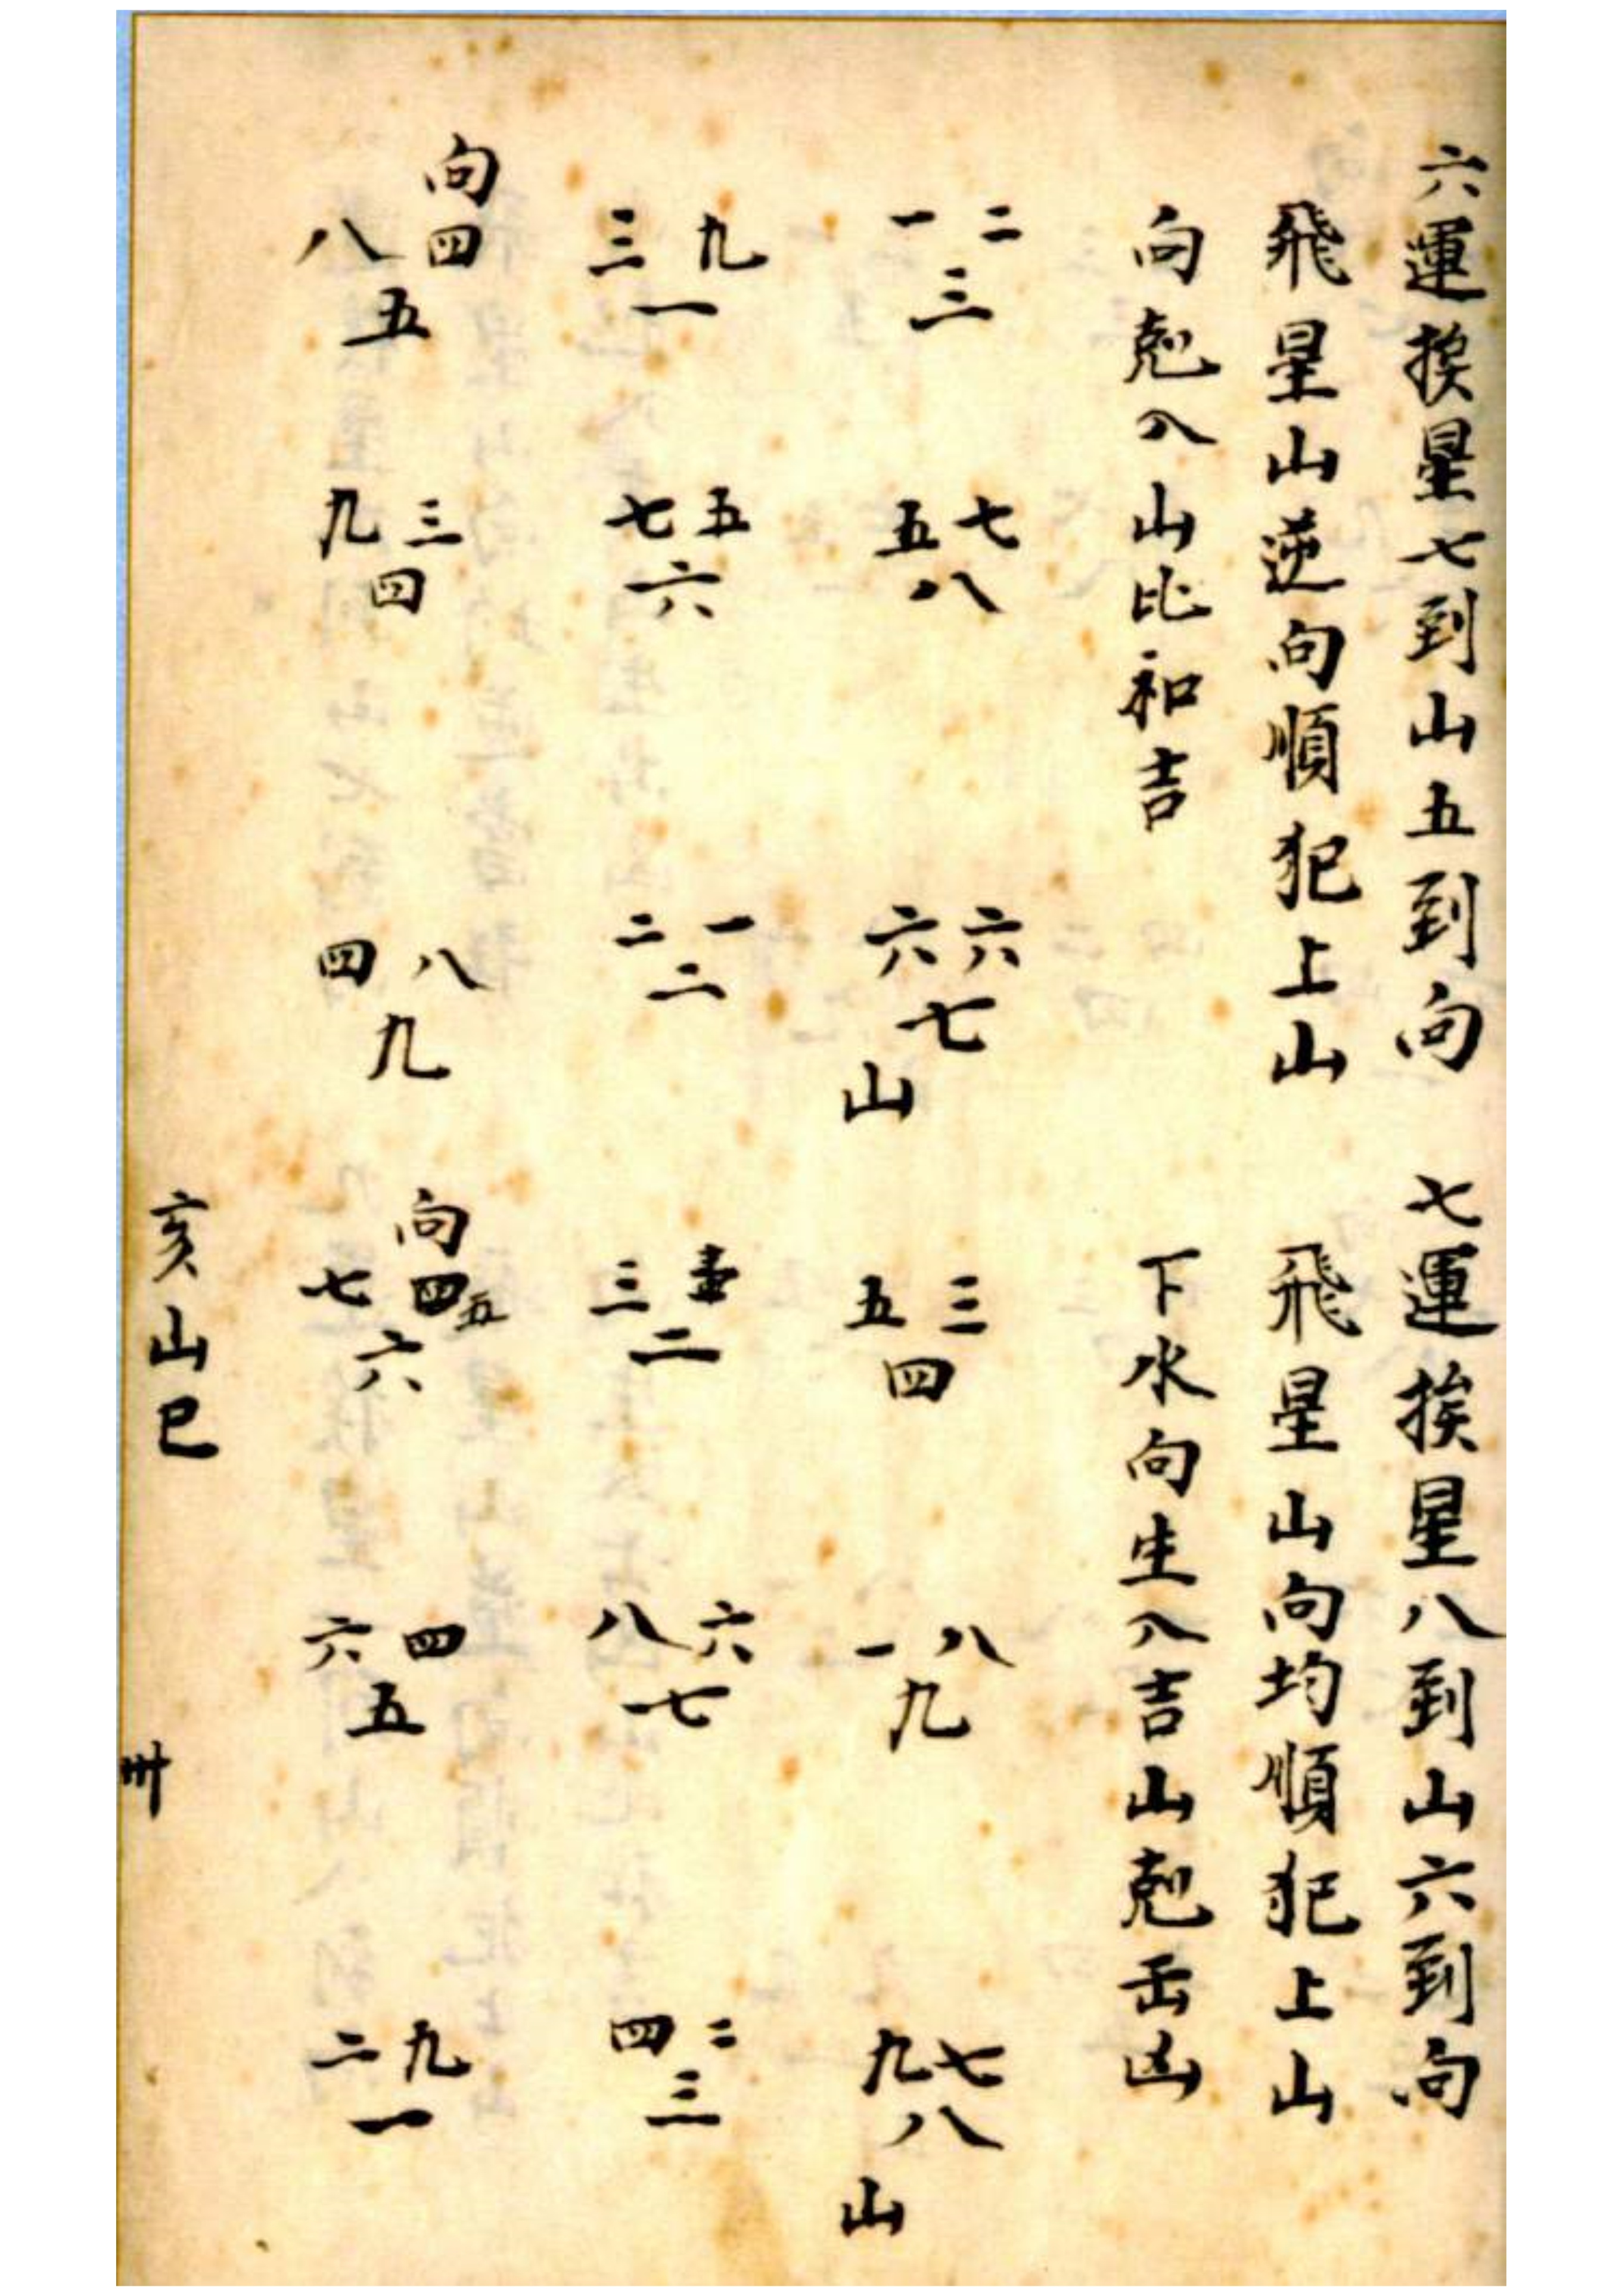 六運挨星七到山五到向
飛星山逆向順犯上山
向剋入山比和吉
二 一
三
七 五
八
六 六
七
山
九 三
一
五 七
六
一 二
二
向
四 八
五
三 九
四
八 四
九
七運挨星八到山六到向
飛星山向均順犯上山
下水向生入吉山剋出凶
三 五
四
八 一
九
七 九
八
山
三
二
六 八
七
二 四
三
向
四五 七
六
四 六
五
九 二
一
亥山巳
卌